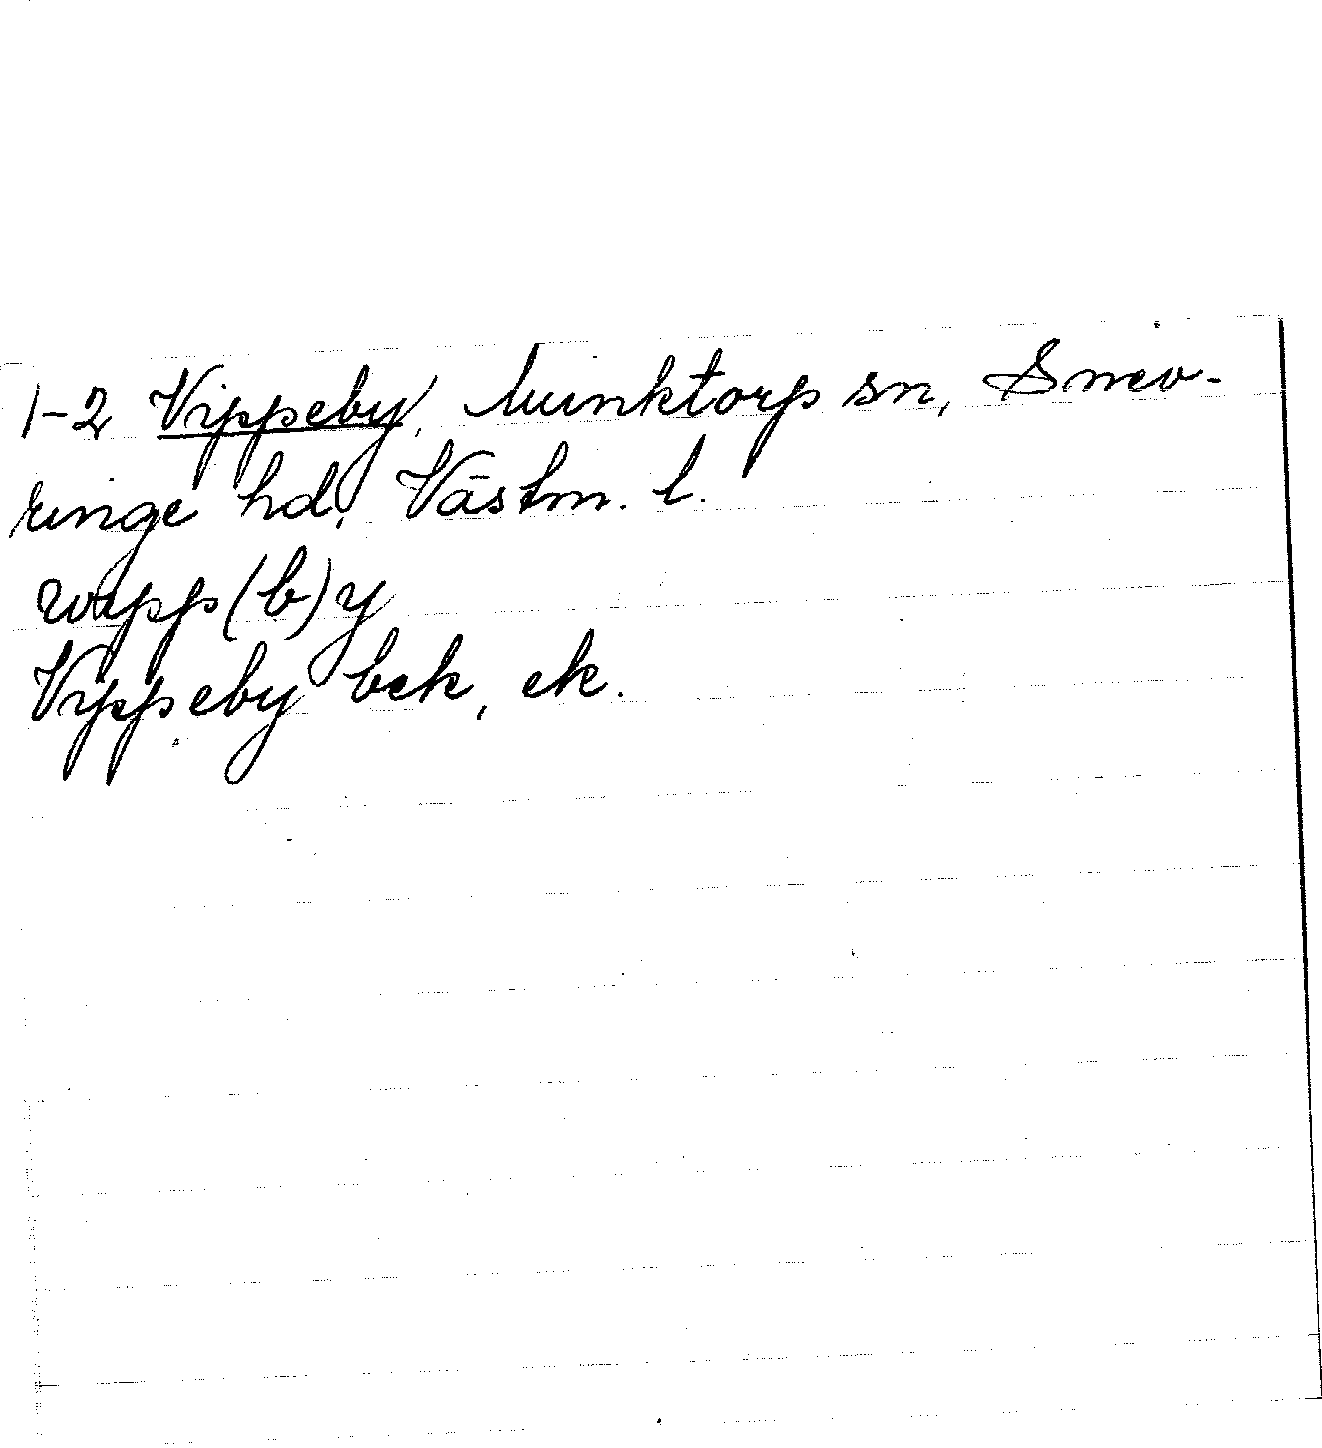 1-2 Vippeby, Munktorps sn, Snev-
ringe hd, Västm. l.
wipp(b)y
Vippeby bek, ek.